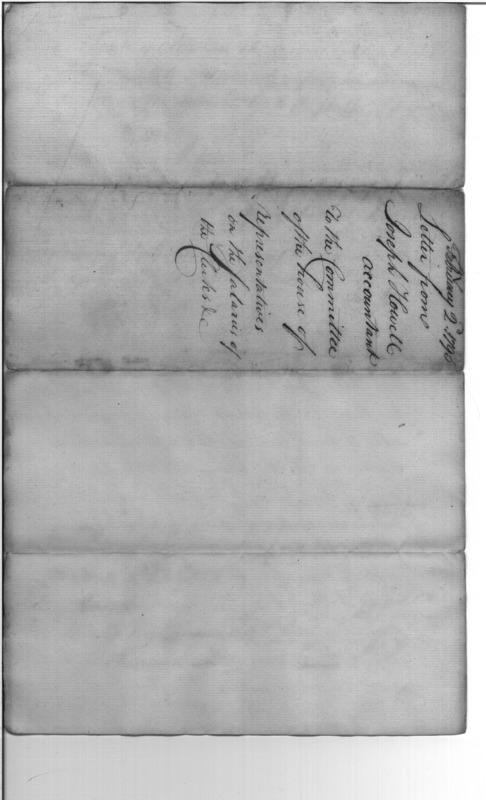 February 2d. 1795
Letter from
Joseph Howell
accountant
To the Committee
of the house of
Representatives
on the Salaries of
the Clerks &c